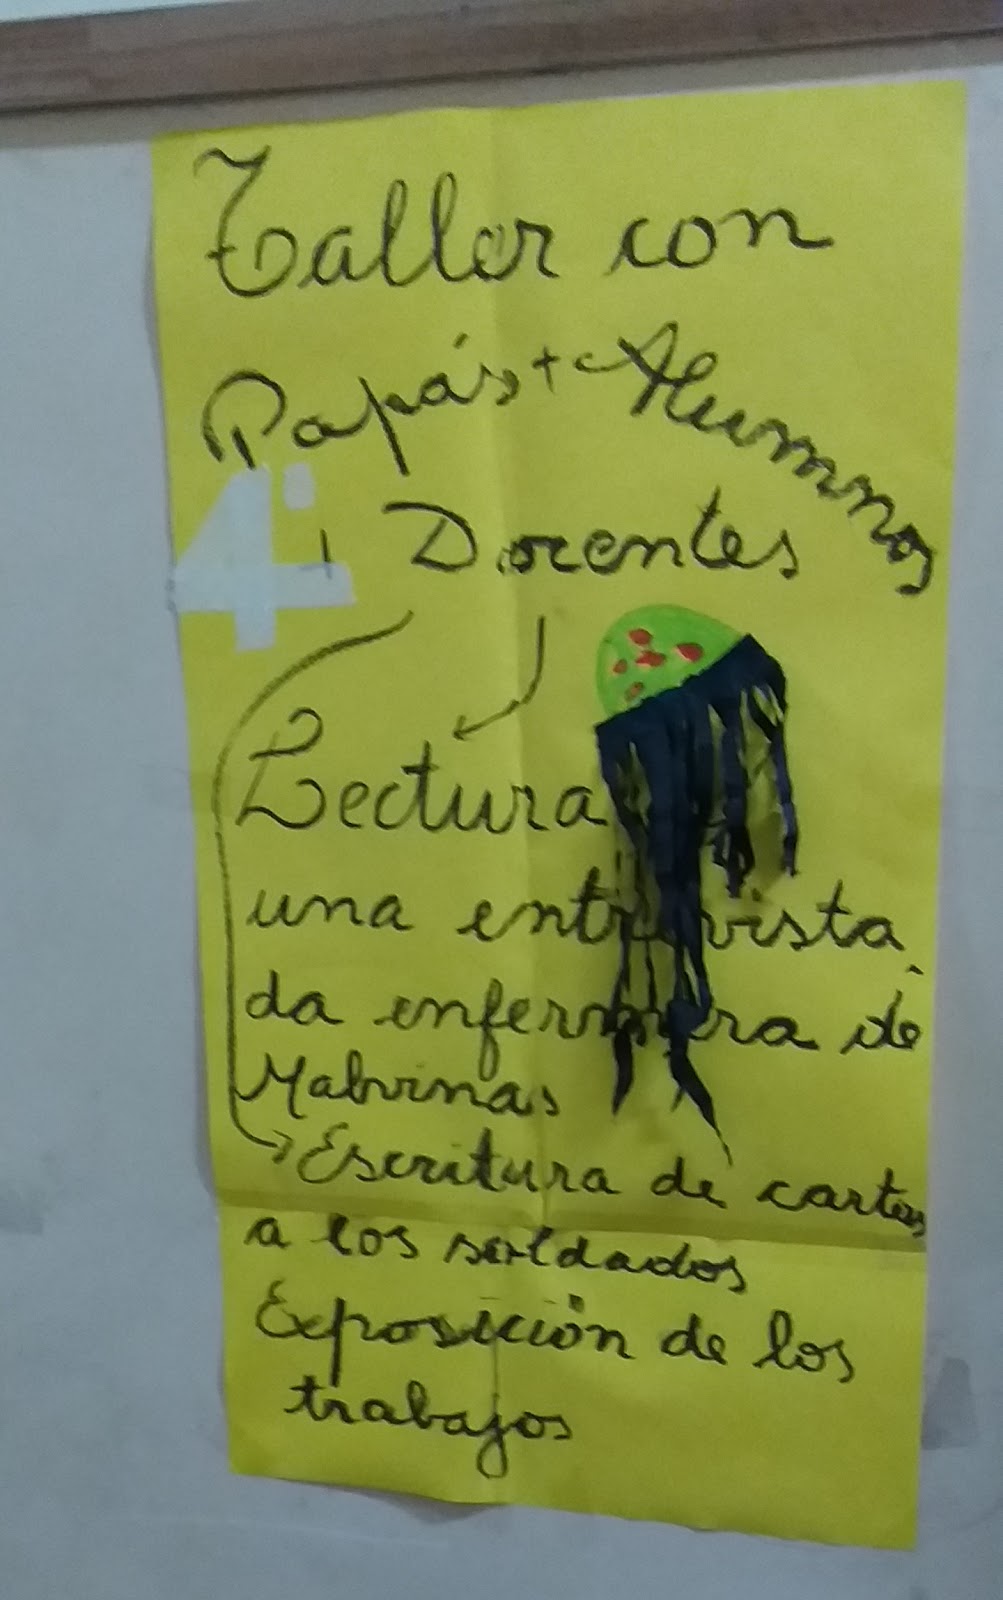 Taller con
Papás + Alumnos
4° Docentes
Lectura
una entrevista
da enfermera de
Malvinas
Escritura de cartas
a los soldados
Exposición de los
trabajos